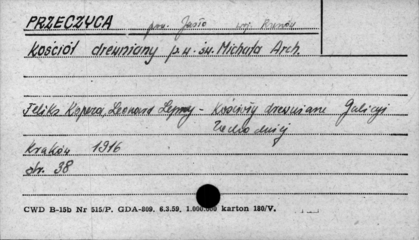 PRZECZYCA pow. Jasło woj.
Kościół drewniany p.w. św. Michała Arch.
Feliks Kopera, Leonard Lepszy - Kościoły drewniane Galicyi
Zachodniej
Kraków 1916
str. 38
CWD B-15b Nr 515/P. GDA-809. 6.3.59. 1.000.000 karton 180/V.